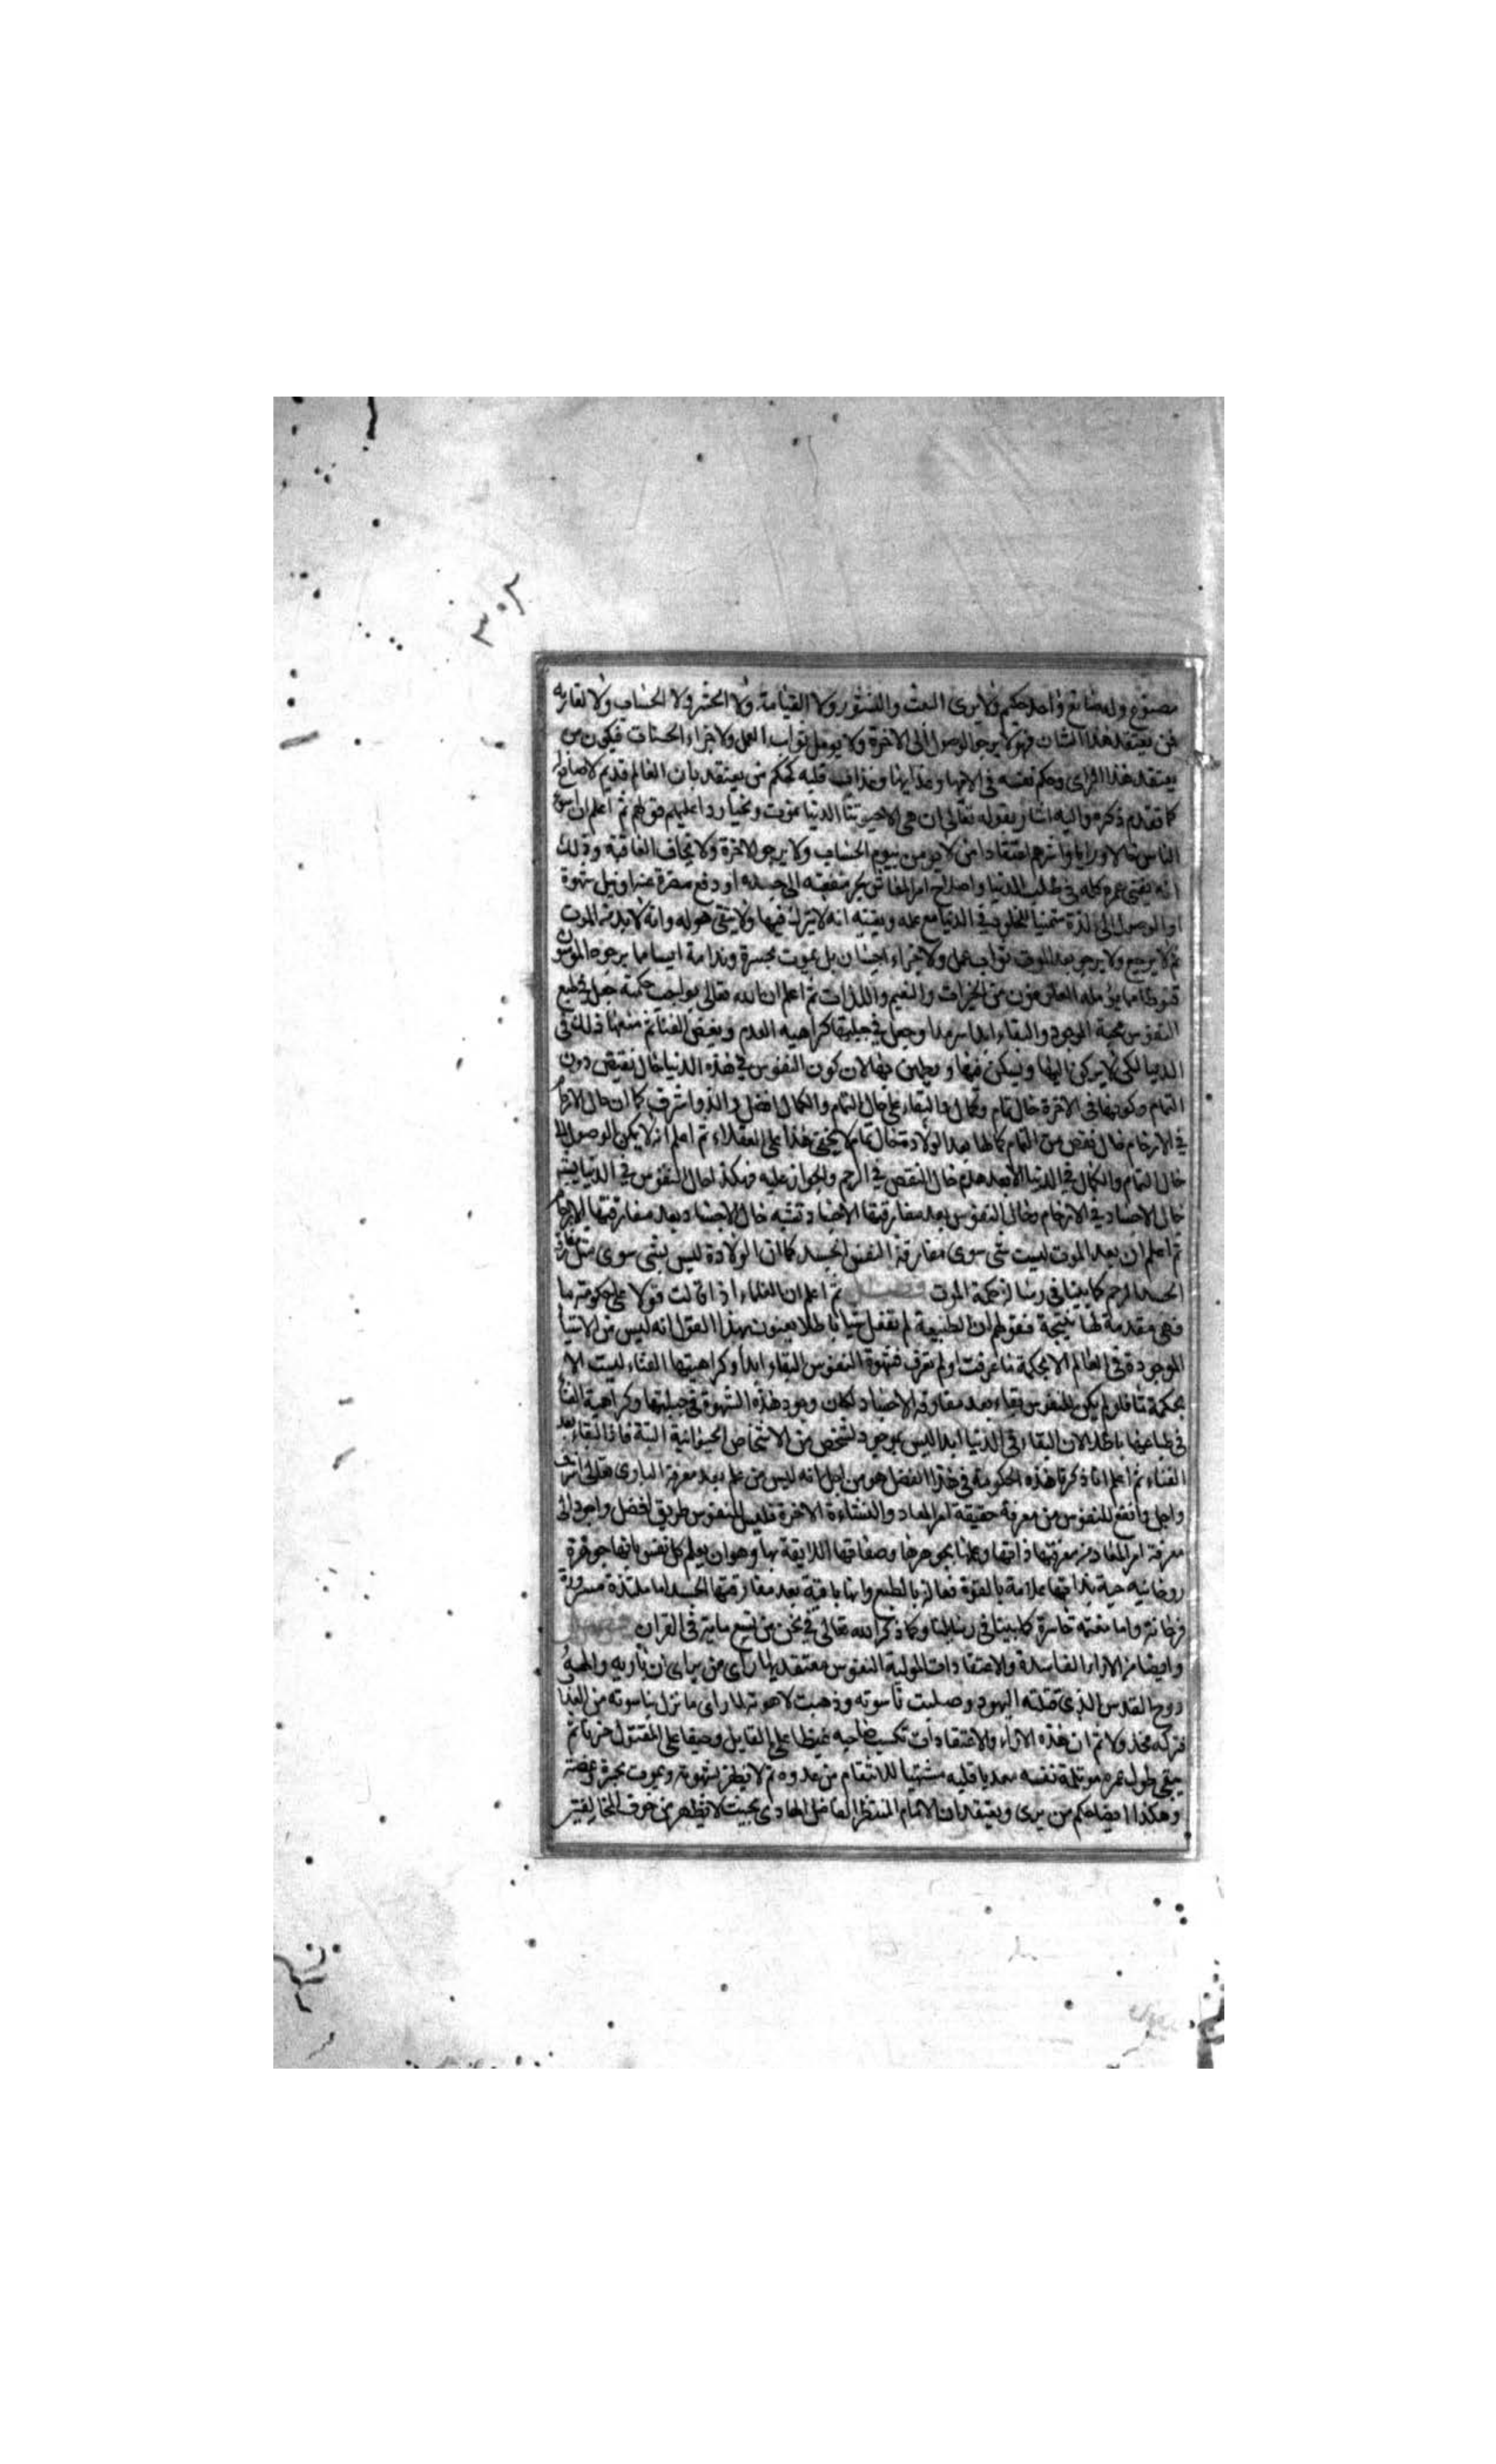 ٣٠٢
مصنوع وله صانع واحد حكيم ولا يرى البعث والنشور ولا القيامة ولا الحشر ولا الحساب ولا لقاء ربه
فمن يعتقد هذا الشان فهو لا يرجو الوصول الى الاخرة ولا يومل ثواب العمل ولا جزاء الحسنات فيكون من
يعتقد هذا الراى وحكم نفسه فى الامها وعذابها وعذاب قلبه كحكم من يعتقد بان العالم قديم لا صانع له
كما تقدم ذكره واليه اشار بقوله تعالى ان هى الا حيوتنا الدنيا نموت ونحيا ردا عليهم قولهم ثم اعلم ان اسوء
الناس حالا ورايا وا اعتقادا من لا يومن بيوم الحساب ولا يرجو الاخرة ولا يخاف العاقبة وذلك
انه يفنى عمره كله فى طلب الدنيا واصلاح امر المعاش بجر منفعته الى جسده او دفع مضرة عنه او نيل شهوة
او الوصول الى لذة متمنيا للخلود فى الدنيا مع علمه ويقينه انه لا يترك فيها ولا يبقى هو له وانه لا بد من الموت
ثم لا يرجع ولا يرجو بعد الموت ثواب عمل ولا جزاء احسان بل يموت بحسرة وندامة ايسا مما يرجوه المومنون
قنوطا مما يؤمله العارفون من الخيرات والنعيم واللذات ثم اعلم ان الله تعالى بواجب حكمته جعل فى طبع
النفوس محبة الوجود والبقاء ابدا سرمدا وجعل فى جبلتها كراهية العدم وبغض الفناء ثم منعها ذلك فى
الدنيا لكى لا يركن اليها ويسكن فيها و يطمئن بها لان كون النفوس فى هذه الدنيا حال نقيص دون
التمام وكونها فى الاخرة حال تمام وكمال والبقاء على حال التمام والكمال افضل والذ واشرف كما ان حال
فى الارحام حال نقص من التمام كما لها بعد الولادة حال تمام كما لا يخفى هذا على العقلاء ثم اعلم انه لا يمكن الوصول الى
حال التمام والكمال فى الدنيا الا بعد هذه حال النقص فى الرحم والجواز عليه فهكذا حال النفوس فى الدنيا يشبه
حال الاجساد فى الارحام وحال النفوس بعد مفارقتها الاجساد تشبه حال الاجساد بعد مفارقتها الارحام
ثم اعلم ان بعد الموت ليست شى سوى مفارقة النفس الجسد كما ان الولادة ليس بشى سوى مفارقة
الجسد الرحم كما بينا فى رسالة حكمة الموت فصل ثم اعلم ان العلماء اذا قالت قولا على حكومة ما
فهى مقدمة لها نتيجة فقولهم ان الطبيعة لم تفعل شيا باطلا يعنون بهذا القول انه ليس من الاشياء
الموجودة فى العالم الا بحكمة ما عرفت او لم يعرف فشهوة النفوس البقاء ابدا وكراهيتها الفناء ليست الا
بحكمة ما فلو لم يكن للنفوس بقاء بعد مفارقة الاجساد لكان وجود هذه الشهوة فى جبلتها وكراهية الفناء
فى طباعها باطلا لان البقاء فى الدنيا ابدا ليس بموجود لشخص من الاشخاص الحيوانية البتة فاذا البقاء بعد
الفناء ثم اعلم انا ذكرنا هذه الحكومة فى هذا الفصل هو من اجل انه ليس من علم بعد معرفة البارى تعالى اشرف
واجل وانفع للنفوس من معرفة حقيقة امر المعاد والنشاءة الاخرة فليس للنفوس طريق افضل واجود الى
معرفة امر المعاد من معرفتها ذاتها وعلمها بجوهرها وصفاتها اللايقة بها وهو ان يعلم كل نفس بانها جوهرة
روحانية حية بذاتها علامة بالقوة فعالة بالطبع وانها باقية بعد مفارقتها الجسد اما ملتذة مسرورة
فرحانة واما مغتمة خاسرة كما بينا فى رسايلنا وكما ذكر الله تعالى فى نحو من تسع ماية فى القران فصل
وايضا من الاراء الفاسدة والاعتقادات المولمة لنفوس معتقديها راى من يراى ان باريه والهه
روح القدس الذى قتلته اليهود وصلبت ناسوته وذهبت لاهوته لما راى ما نزل بناسوته من العذاب
فتركه مخذولا ثم ان هذه الاراء والاعتقادات تكسب صاحبه غيظا على القايل وحنقا على المقتول حزنا ثم
يبقى طول عمره مولمة نفسه معذبا قلبه مشتهيا للانتقام من عدوه ثم لا يظفر بشهوته ويموت بحسرة وغصة
وهكذا ايضا حكم من يرى ويعتقد ان الامام المنتظر الفاضل الهادى بحيث لا يظهر من خوف المخالفين